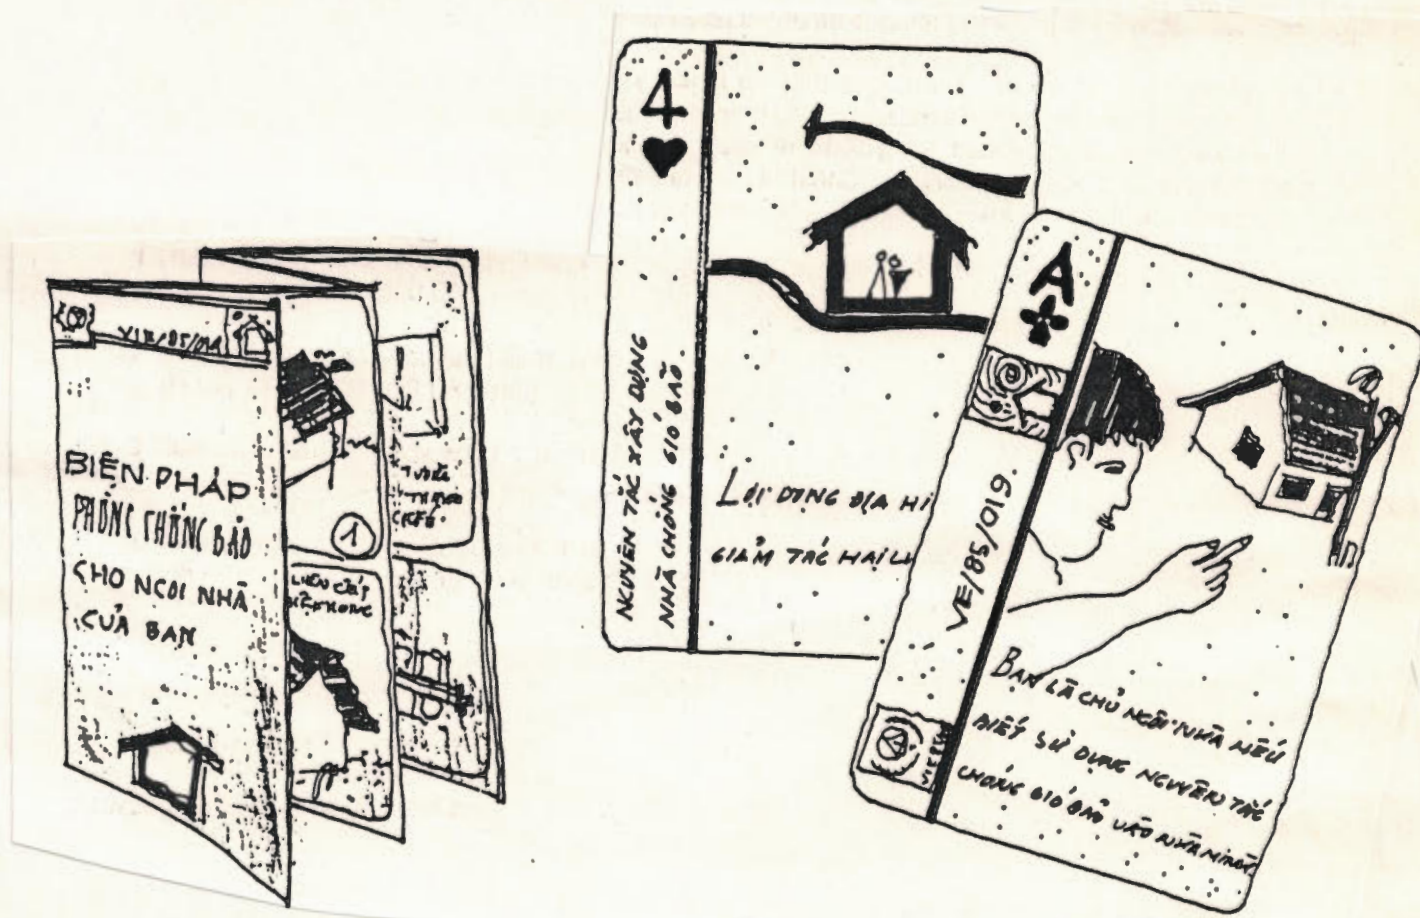 VIE/85/019
BIỆN PHÁP
PHÒNG CHỐNG BÃO
CHO NGOI NHÀ
CỦA BAN
1
LIÊN KẾT
4
NGUYÊN TẮC XÂY DỰNG
NHÀ CHỐNG GIÓ BÃO
LỢI DỤNG ĐỊA HÌ
GIẢM TÁC HẠI
A
VE/85/019
BẠN LÀ CHỦ NGÔI NHÀ NẾU
BIẾT SỬ DỤNG NGUYÊN TẮC
CHỐNG GIÓ BÃO VÀO NHÀ MÌNH